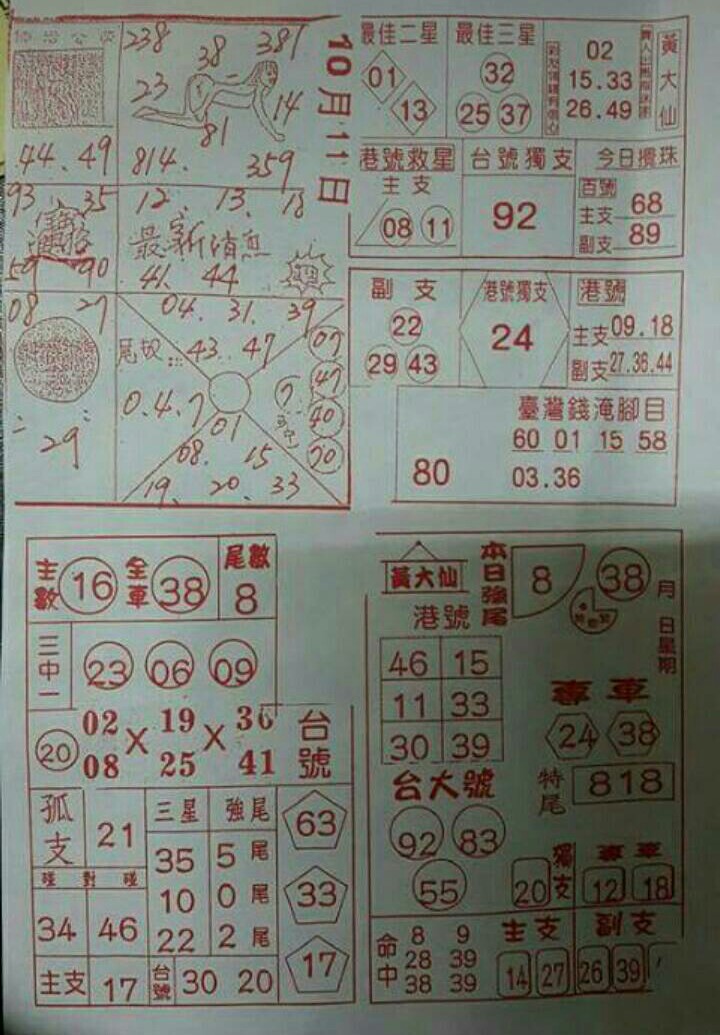 238 38 381
23 14
81
814. 359
44. 49
93 35
59 90
12. 13. 18
最新消息
41. 44
08 27
29
04. 31. 39
尾
43 47
0.4.7
01
08. 15
19. 20. 33
07
47
40
70
7
10月11日
最佳二星
01
13
最佳三星
32
25 37
02
15.33
26.49
黃大仙
港號救星
主支
08 11
台號獨支
92
今日攪珠
百號
主支 68
副支 89
副支
22
29 43
港號獨支
24
港號
主支 09.18
副支 27.36.44
臺灣錢淹腳目
60 01 15 58
80 03.36
主數 16 全車 38
尾數
8
三中一 23 06 09
20
02 X 19 X 36
08 25 41
台號
孤支 21
碰對碰
34 46
主支 17
三星 強尾
35 5尾
10 0尾
22 2尾
台號 30 20
63
33
17
黃大仙
本日強尾 8
38
月
日星期
港號
46 15
11 33
30 39
專車
24 38
特尾 818
台大號
92 83
55
獨支 20
專車
12 18
命中
8 9
28 39
38 39
主支
14 27
副支
26 39